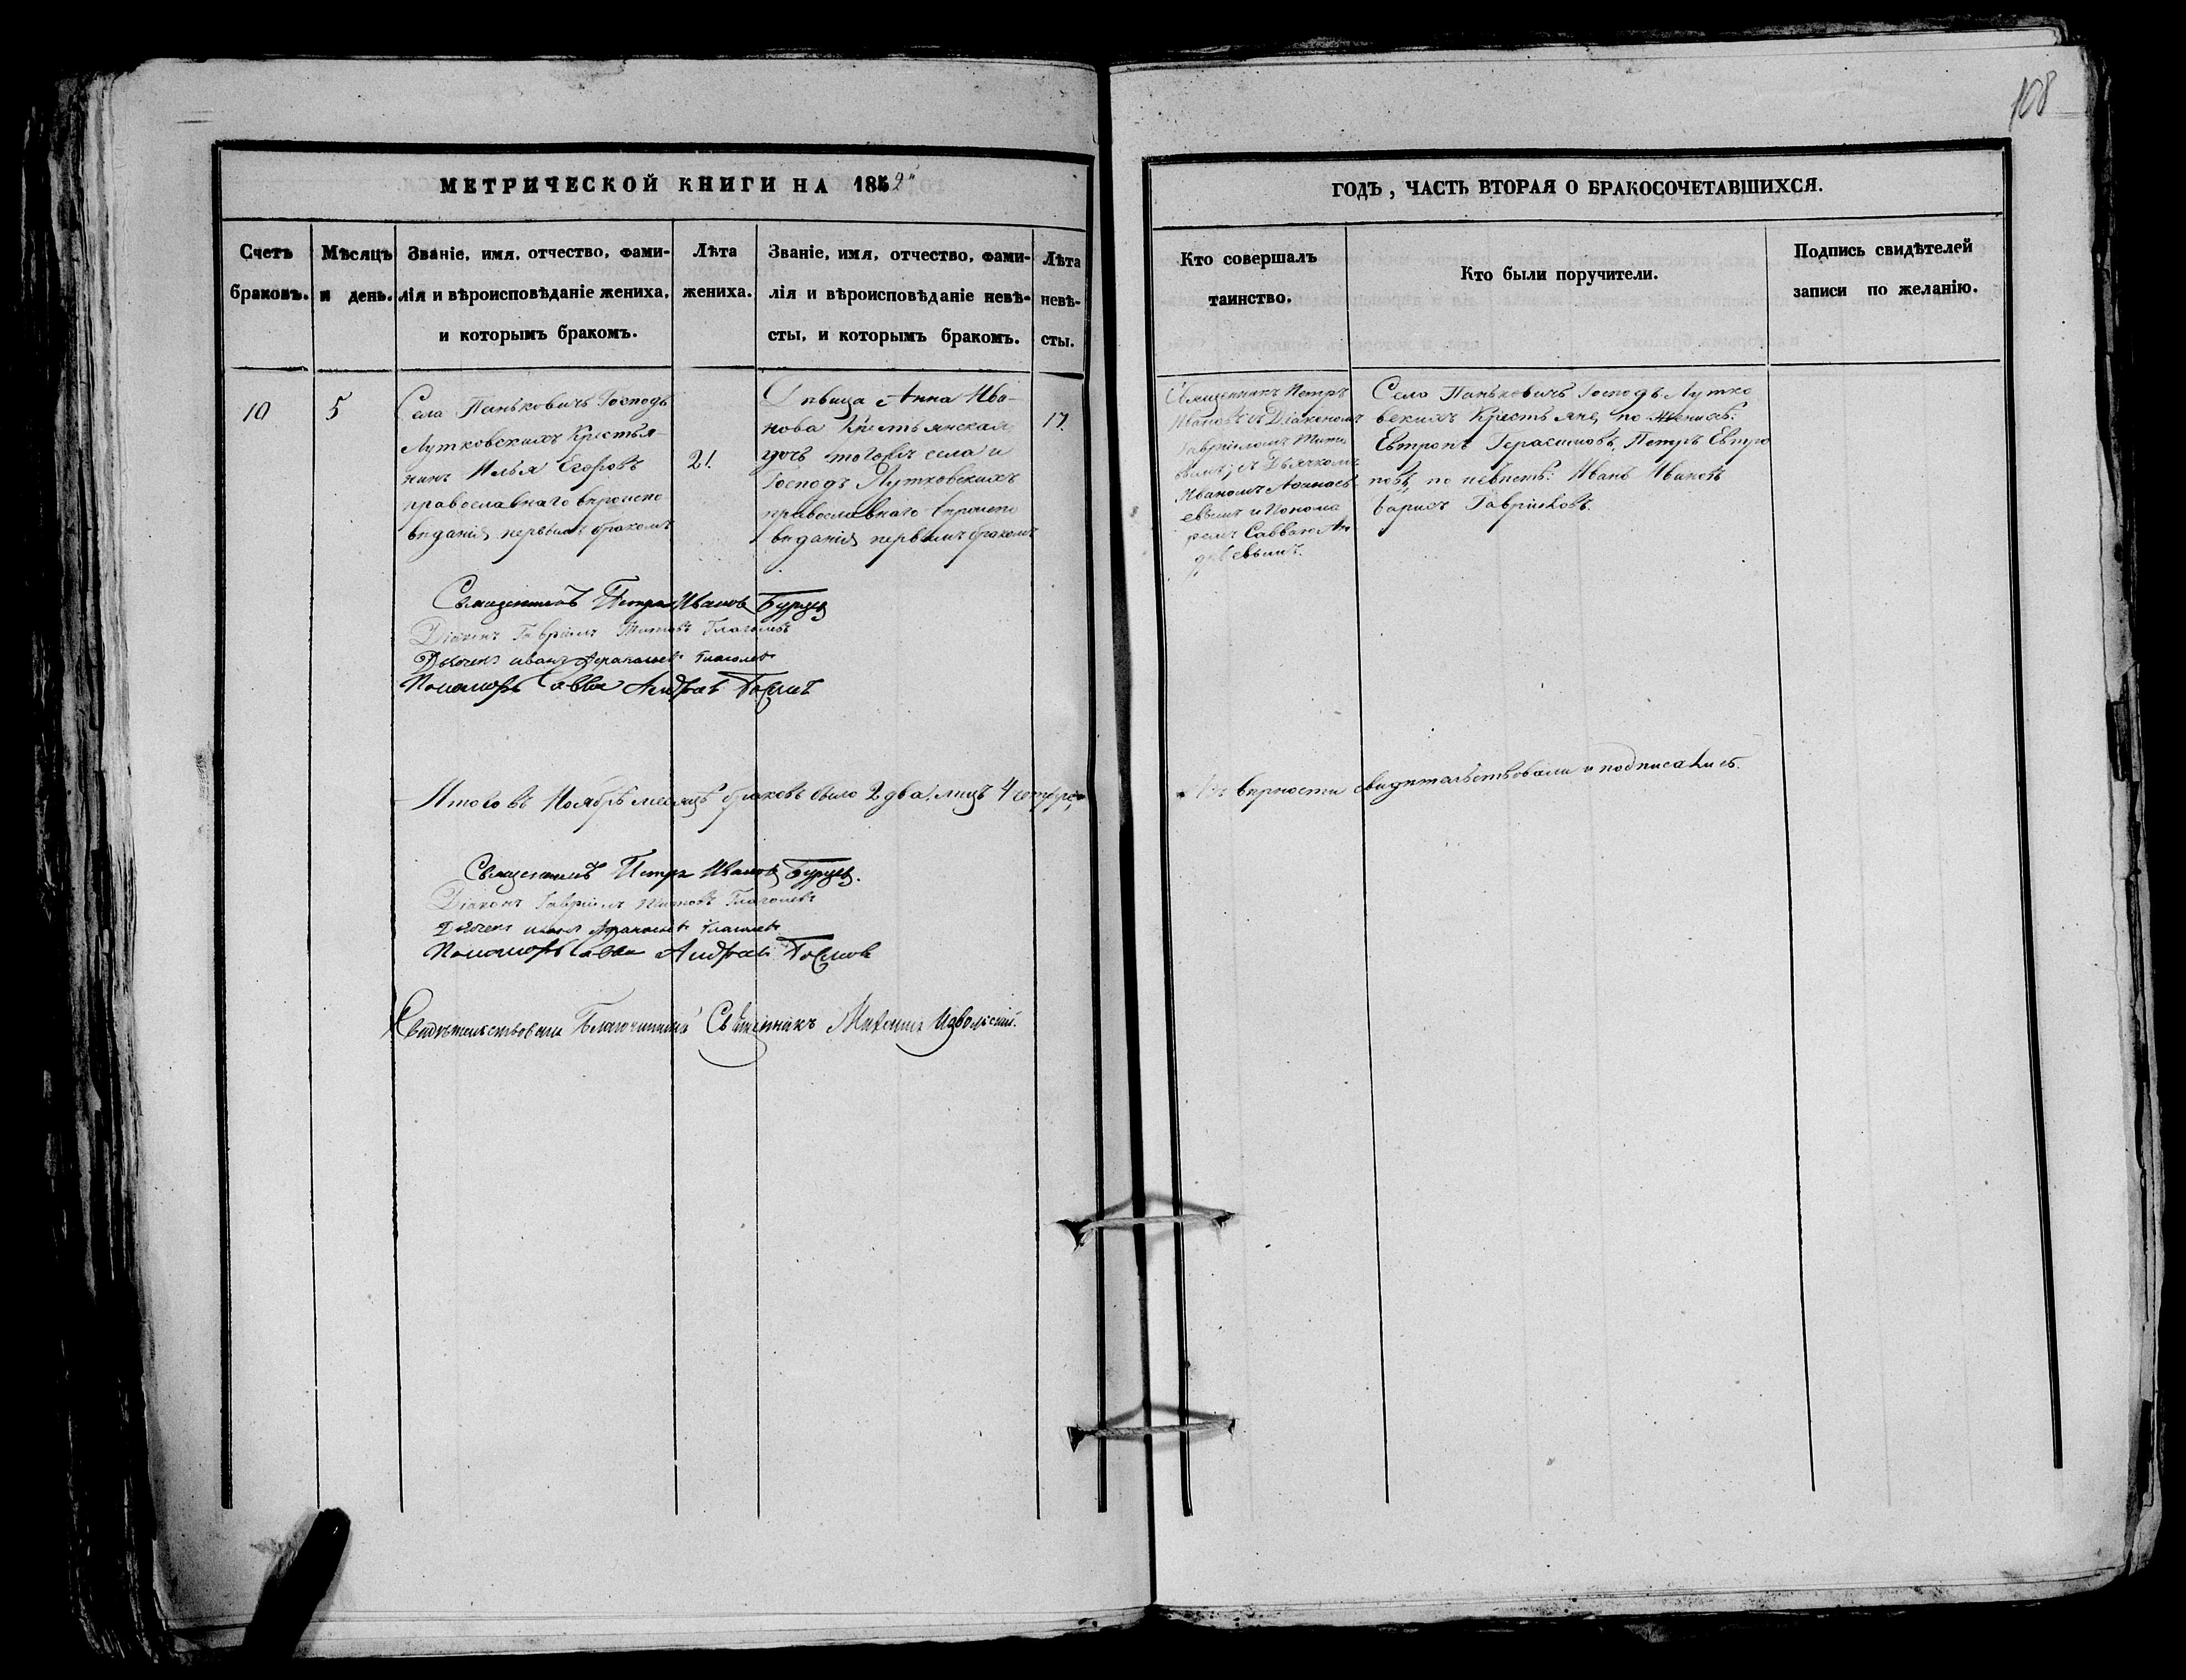 108
МЕТРИЧЕСКОЙ КНИГИ НА 1852
ГОДЪ, ЧАСТЬ ВТОРАЯ О БРАКОСОЧЕТАВШИХСЯ.
Счетъ
браковъ.
Мѣсяцъ
и день.
Званіе, имя, отчество, фами-
лія и вѣроисповѣданіе жениха,
и которымъ бракомъ.
Лѣта
жениха.
Званіе, имя, отчество, фами-
лія и вѣроисповѣданіе невѣ-
сты, и которымъ бракомъ.
Лѣта
невѣ-
сты.
Кто совершалъ
таинство.
Кто были поручители.
Подпись свидѣтелей
записи по желанію.
10
5
Села Паньковичь Господъ
Лутковскихъ Крестья-
нинъ Илья Егоровъ
православнаго вѣроиспо
вѣданія первымъ бракомъ
21.
Дѣвица Анна Ива-
нова Крестьянская
дочь тогожъ села и
Господъ Лутковскихъ
православнаго вѣроиспо
вѣданія первымъ бракомъ
17.
Священникъ Петръ
Ивановъ съ Діакономъ
Гавріиломъ Тито
вымъ, съ Дьячкомъ
Иваномъ Афанась
евымъ и Понома
ремъ Саввою Ан
дреевымъ.
Села Паньковичь Господъ Лутко
вскихъ Крестьяне, по женихѣ:
Евтропъ Герасимовъ, Петръ Евтро
повъ, по невѣстѣ: Иванъ Ивановъ
Борисъ Гавриловъ.
Священникъ Петръ Ивановъ Бурцев
Діаконъ Гавріилъ Титовъ Глаголевъ
Дьячекъ Иванъ Афанасьевъ Глаголевъ
Пономарь Савва Андреевъ
Итого въ Ноябрѣ месяцѣ браковъ было 2 два, лицъ 4 четыре,
въ верности свидѣтельствовали и подписались.
Священникъ Петръ Ивановъ Бурцев.
Діаконъ Гавріилъ Титовъ Глаголевъ
Дьячекъ Иванъ Афанасьевъ Глаголевъ
Пономарь Савва Андреевъ
Свидѣтельствовалъ Благочинный Священникъ Михаилъ Извольскій.